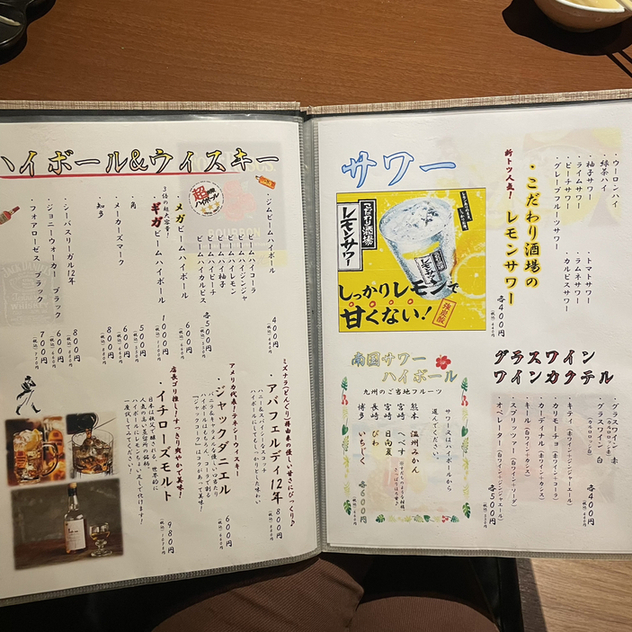 ハイボール&ウィスキー
・ジムビームハイボール
400円
ビームハイコーラ
ビームハイジンジャー
ビームハイレモン
ビームハイ柚子
ビームハイピーチ
ビームハイカルピス
各500円
メガビームハイボール
800円
ギガビームハイボール
1000円
・角
500円
・メーカーズマーク
600円
・知多
800円
・シーバスリーガル12年
600円
・ジョニーウォーカー ブラック
600円
・フォアローゼス ブラック
700円
・アバフェルディ12年
800円
アメリカ代表！テネシーウィスキー
・ジャックダニエル
600円
店長ゴリ推し！すっきり爽やかで美味！
・イチローズモルト
980円
サワー
・ウーロンハイ
・緑茶ハイ
・柚子サワー
・ライムサワー
・ピーチサワー
・グレープフルーツサワー
・トマトサワー
・ラムネサワー
・カルピスサワー
新トツ人気！
・こだわり酒場の
レモンサワー
各400円
こだわり酒場
レモンサワー
しっかりレモンで
甘くない！
南国サワー
ハイボール
九州のご当地フルーツ
サワー又はハイボールから
選んでください。
熊本 温州みかん
宮崎 へべす
宮崎 日向夏
長崎 びわ
博多 いちじく
各600円
グラスワイン
ワインカクテル
・グラスワイン 赤
・グラスワイン 白
各400円
・キティ(赤ワイン×ジンジャーエール)
・カリモーチョ(赤ワイン×コーラ)
・カーディナル(赤ワイン×カシス)
・キール(白ワイン×カシス)
・スプリッツァー(白ワイン×ソーダ)
・オペレーター(白ワイン×ジンジャーエール)
各500円